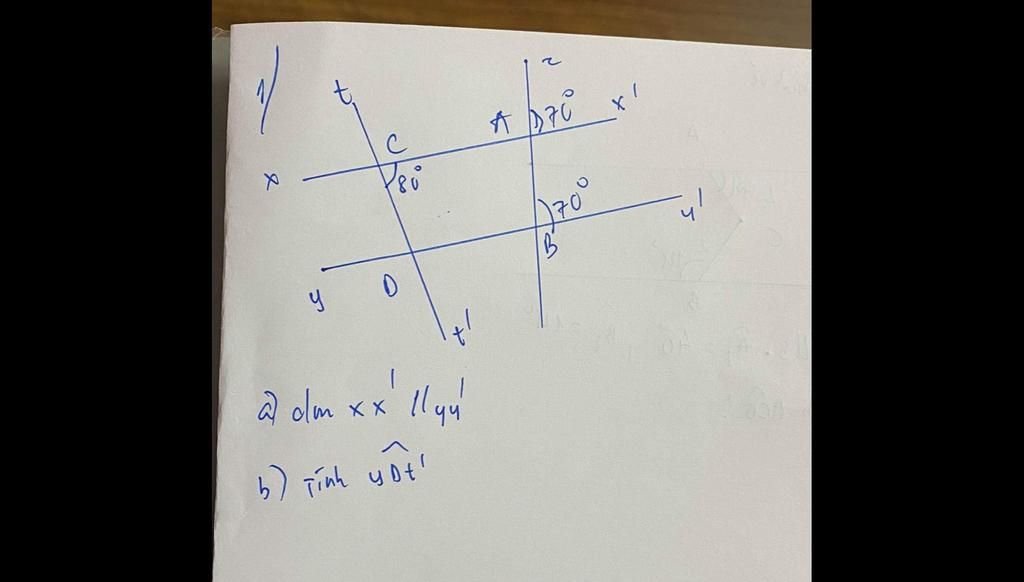 1/
t
z
C
A
70°
x'
x
80°
70°
y'
B
y
D
t'
a) dm xx' // yy'
b) Tính yDt'